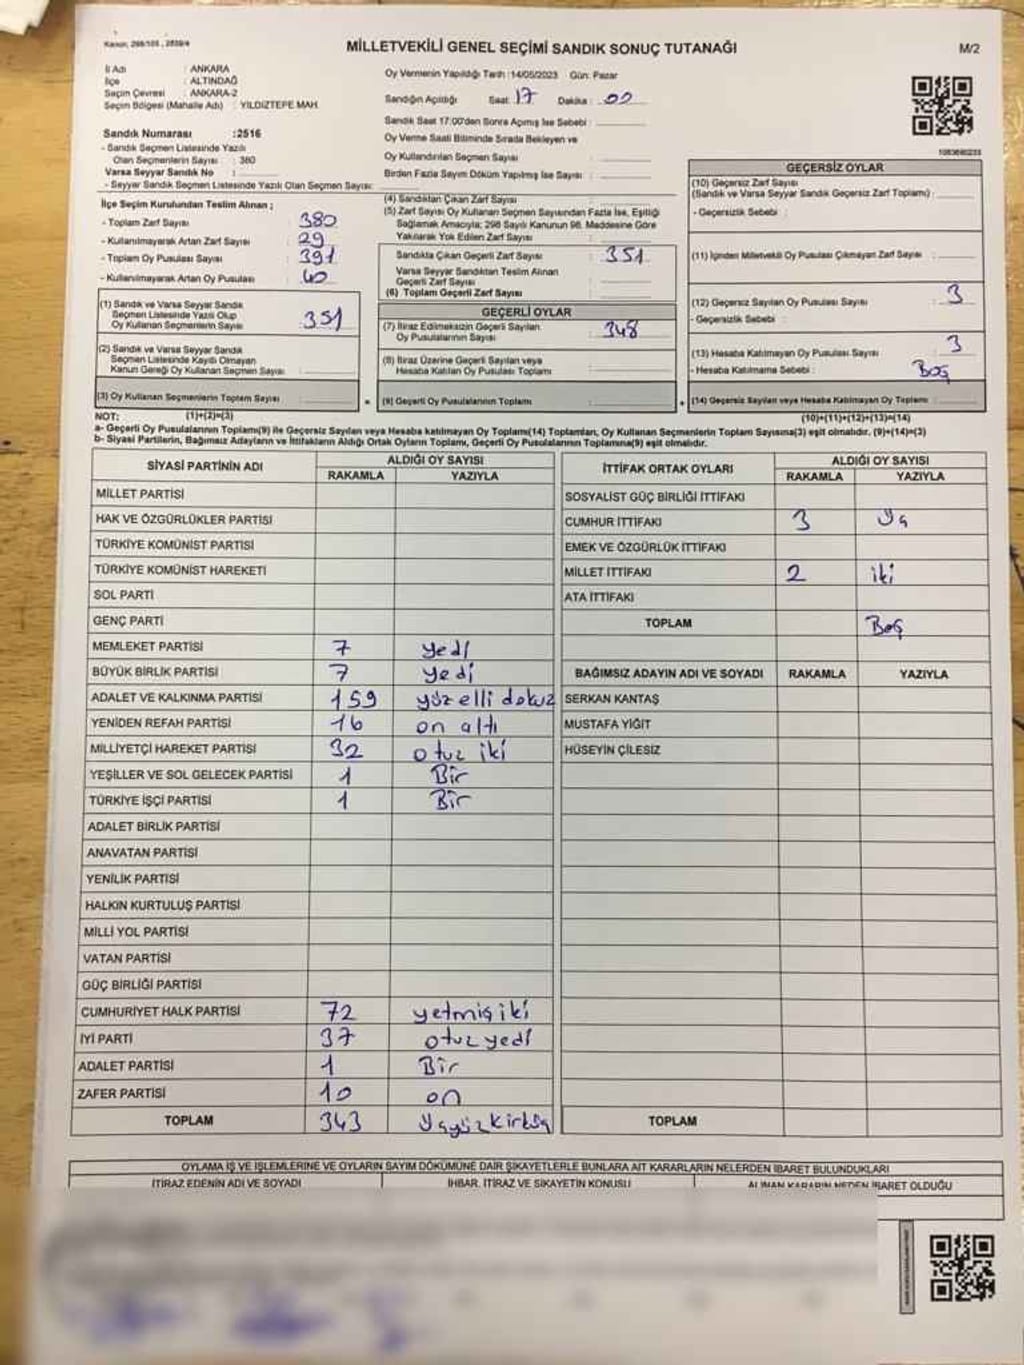 Kanun; 298/105 , 2839/4
MİLLETVEKİLİ GENEL SEÇİMİ SANDIK SONUÇ TUTANAĞI
M/2
İl Adı : ANKARA
İlçe : ALTINDAĞ
Seçim Çevresi : ANKARA-2
Seçim Bölgesi (Mahalle Adı) : YILDIZTEPE MAH.
Oy Vermenin Yapıldığı Tarih :14/05/2023 Gün: Pazar
Sandığın Açıldığı Saat: 17 Dakika : 00
Sandık Saat 17:00'den Sonra Açılmış İse Sebebi :
Oy Verme Saati Bitiminde Sırada Bekleyen ve
Oy Kullandırılan Seçmen Sayısı :
Birden Fazla Sayım Döküm Yapılmış İse Sayısı :
Sandık Numarası :2516
- Sandık Seçmen Listesinde Yazılı
Olan Seçmenlerin Sayısı : 380
Varsa Seyyar Sandık No :
- Seyyar Sandık Seçmen Listesinde Yazılı Olan Seçmen Sayısı:
İlçe Seçim Kurulundan Teslim Alınan ;
- Toplam Zarf Sayısı : 380
- Kullanılmayarak Artan Zarf Sayısı : 29
- Toplam Oy Pusulası Sayısı : 391
- Kullanılmayarak Artan Oy Pusulası : 40
(1) Sandık ve Varsa Seyyar Sandık
Seçmen Listesinde Yazılı Olup
Oy Kullanan Seçmenlerin Sayısı : 351
(2) Sandık ve Varsa Seyyar Sandık
Seçmen Listesinde Kayıtlı Olmayan
Kanun Gereği Oy Kullanan Seçmen Sayısı :
(3) Oy Kullanan Seçmenlerin Toplam Sayısı :
(4) Sandıktan Çıkan Zarf Sayısı :
(5) Zarf Sayısı Oy Kullanan Seçmen Sayısından Fazla İse, Eşitliği
Sağlamak Amacıyla; 298 Sayılı Kanunun 98. Maddesine Göre
Yakılarak Yok Edilen Zarf Sayısı :
Sandıkta Çıkan Geçerli Zarf Sayısı : 351
Varsa Seyyar Sandıktan Teslim Alınan
Geçerli Zarf Sayısı :
(6) Toplam Geçerli Zarf Sayısı :
GEÇERLİ OYLAR
(7) İtiraz Edilmeksizin Geçerli Sayılan
Oy Pusulalarının Sayısı : 348
(8) İtiraz Üzerine Geçerli Sayılan veya
Hesaba Katılan Oy Pusulası Toplamı :
= (9) Geçerli Oy Pusulalarının Toplamı :
1083680233
GEÇERSİZ OYLAR
(10) Geçersiz Zarf Sayısı
(Sandık ve Varsa Seyyar Sandık Geçersiz Zarf Toplamı) :
- Geçersizlik Sebebi :
(11) İçinden Milletvekili Oy Pusulası Çıkmayan Zarf Sayısı :
(12) Geçersiz Sayılan Oy Pusulası Sayısı : 3
- Geçersizlik Sebebi :
(13) Hesaba Katılmayan Oy Pusulası Sayısı : 3
- Hesaba Katılmama Sebebi : Boş
+ (14) Geçersiz Sayılan veya Hesaba Katılmayan Oy Toplamı :
NOT: (1)+(2)=(3) (10)+(11)+(12)+(13)=(14)
a- Geçerli Oy Pusulalarının Toplamı(9) ile Geçersiz Sayılan veya Hesaba katılmayan Oy Toplamı(14) Toplamları, Oy Kullanan Seçmenlerin Toplam Sayısına(3) eşit olmalıdır. (9)+(14)=(3)
b- Siyasi Partilerin, Bağımsız Adayların ve İttifakların Aldığı Ortak Oyların Toplamı, Geçerli Oy Pusulalarının Toplamına(9) eşit olmalıdır.
SİYASİ PARTİNİN ADI ALDIĞI OY SAYISI
RAKAMLA YAZIYLA
MİLLET PARTİSİ
HAK VE ÖZGÜRLÜKLER PARTİSİ
TÜRKİYE KOMÜNİST PARTİSİ
TÜRKİYE KOMÜNİST HAREKETİ
SOL PARTİ
GENÇ PARTİ
MEMLEKET PARTİSİ 7 yedi
BÜYÜK BİRLİK PARTİSİ 7 yedi
ADALET VE KALKINMA PARTİSİ 159 yüz elli dokuz
YENİDEN REFAH PARTİSİ 16 on altı
MİLLİYETÇİ HAREKET PARTİSİ 32 otuz iki
YEŞİLLER VE SOL GELECEK PARTİSİ 1 Bir
TÜRKİYE İŞÇİ PARTİSİ 1 Bir
ADALET BİRLİK PARTİSİ
ANAVATAN PARTİSİ
YENİLİK PARTİSİ
HALKIN KURTULUŞ PARTİSİ
MİLLİ YOL PARTİSİ
VATAN PARTİSİ
GÜÇ BİRLİĞİ PARTİSİ
CUMHURİYET HALK PARTİSİ 72 yetmiş iki
İYİ PARTİ 37 otuz yedi
ADALET PARTİSİ 1 Bir
ZAFER PARTİSİ 10 on
TOPLAM 343
İTTİFAK ORTAK OYLARI ALDIĞI OY SAYISI
RAKAMLA YAZIYLA
SOSYALİST GÜÇ BİRLİĞİ İTTİFAKI
CUMHUR İTTİFAKI 3
EMEK VE ÖZGÜRLÜK İTTİFAKI
MİLLET İTTİFAKI 2 iki
ATA İTTİFAKI
TOPLAM Beş
BAĞIMSIZ ADAYIN ADI VE SOYADI RAKAMLA YAZIYLA
SERKAN KANTAŞ
MUSTAFA YİĞİT
HÜSEYİN ÇİLESİZ
TOPLAM
OYLAMA İŞ VE İŞLEMLERİNE VE OYLARIN SAYIM DÖKÜMÜNE DAİR ŞİKAYETLERLE BUNLARA AİT KARARLARIN NELERDEN İBARET BULUNDUKLARI
İTİRAZ EDENİN ADI VE SOYADI İHBAR, İTİRAZ VE ŞİKAYETİN KONUSU ALINAN KARARIN NEDEN İBARET OLDUĞU